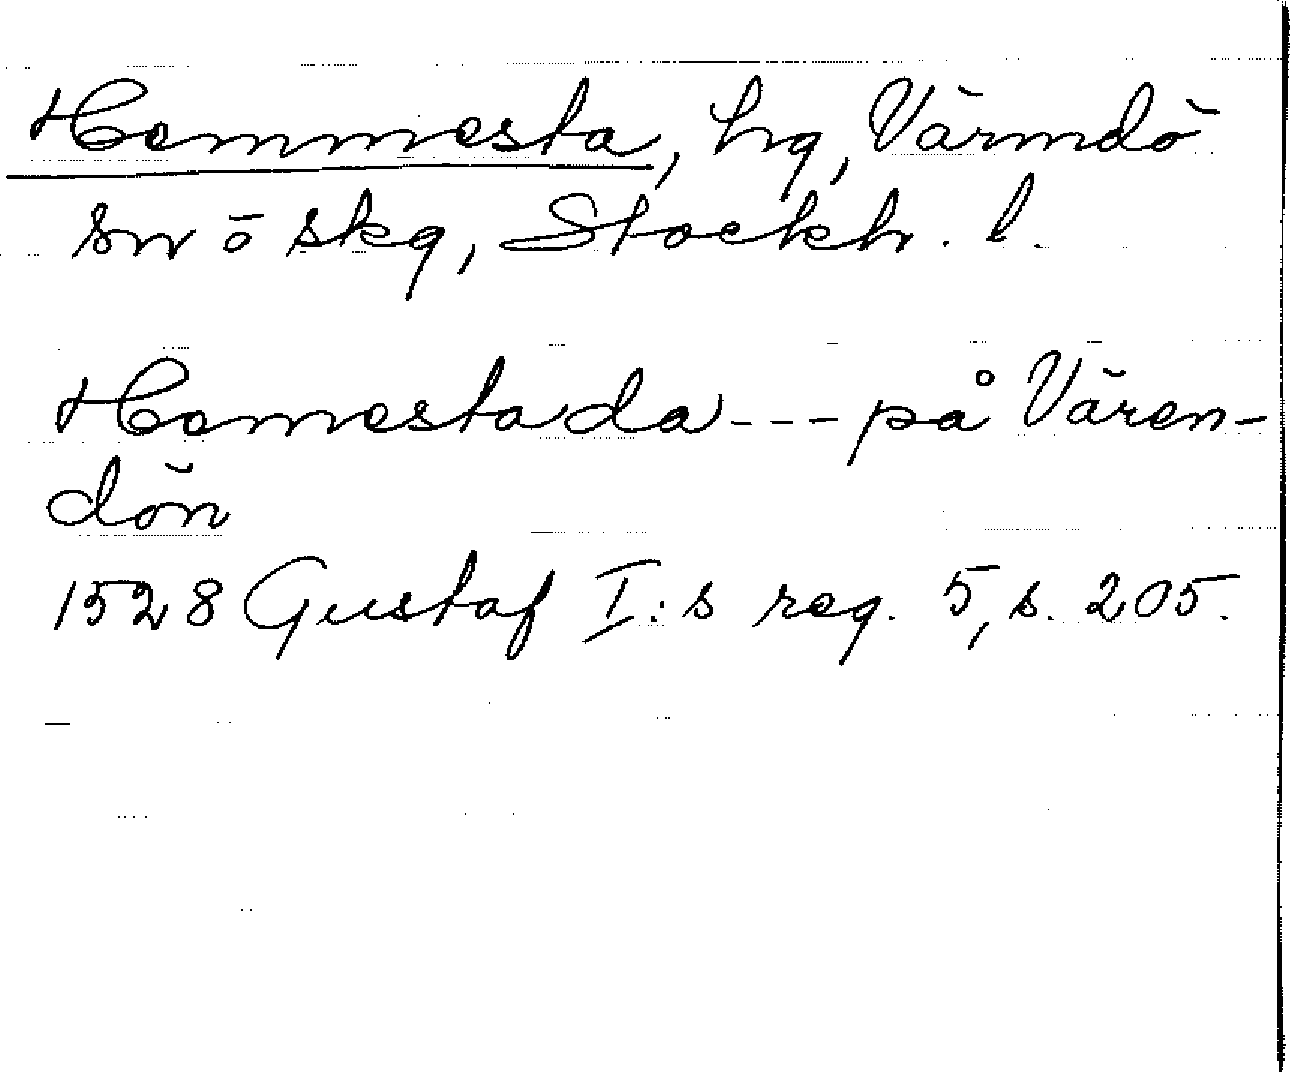 Hemmesta, hg, Värmdö
sn ö skg, Stockh. l.
Hemestada --- på Våren-
dön
1528 Gustaf I:s reg. 5, s. 205.